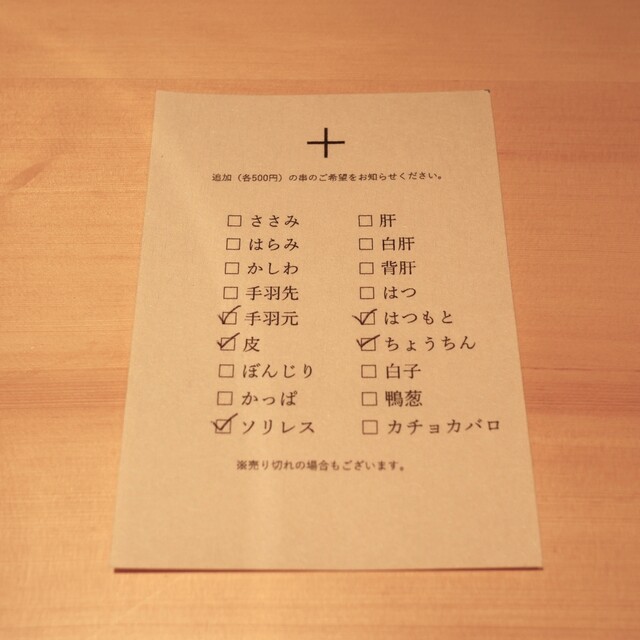 十
追加（各500円）の串のご希望をお知らせください。
□ ささみ
□ はらみ
□ かしわ
□ 手羽先
☑ 手羽元
☑ 皮
□ ぼんじり
□ かっぱ
☑ ソリレス
□ 肝
□ 白肝
□ 背肝
□ はつ
☑ はつもと
☑ ちょうちん
□ 白子
□ 鴨葱
□ カチョカバロ
※売り切れの場合もございます。